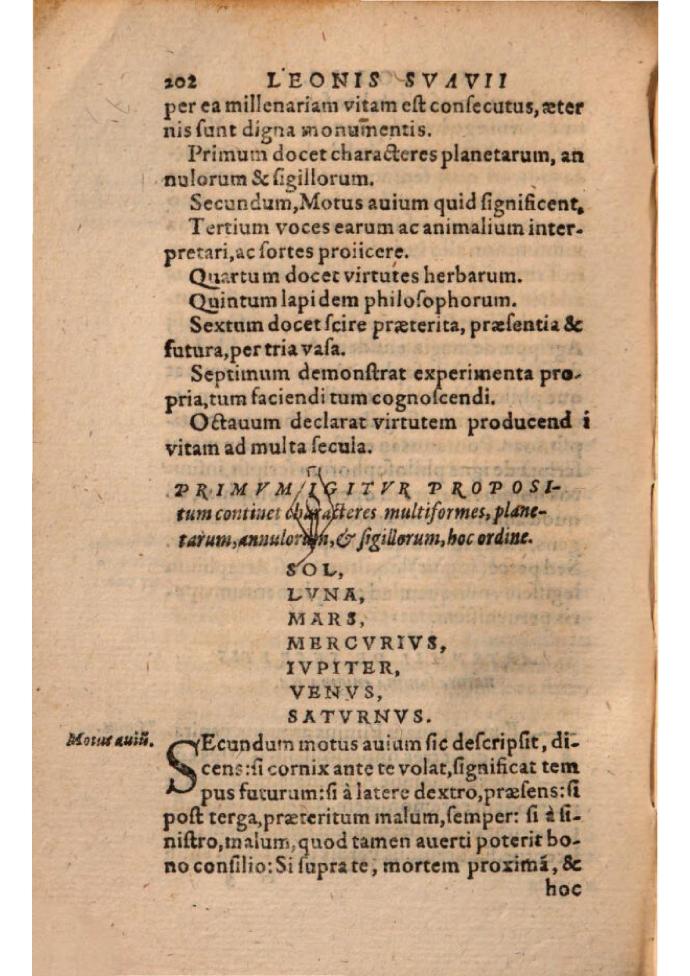 202 LEONIS SVAVII
per ea millenariam vitam eſt conſecutus, æter
nis ſunt digna monumentis.
Primum docet characteres planetarum, an
nulorum & ſigillorum.
Secundum, Motus auium quid ſignificent,
Tertium voces earum ac animalium inter-
pretari, ac ſortes proiicere.
Quartum docet virtutes herbarum.
Quintum lapidem philoſophorum.
Sextum docet ſcire præterita, præſentia &
futura, per tria vaſa.
Septimum demonſtrat experimenta pro-
pria, tum faciendi tum cognoſcendi.
Octauum declarat virtutem producendi
vitam ad multa ſecula.
PRIMVM IGITVR PROPOSI-
tum continet characteres multiformes, plane-
tarum, annulorum, & ſigillorum, hoc ordine.
SOL,
LVNA,
MARS,
MERCVRIVS,
IVPITER,
VENVS,
SATVRNVS.
Motus auiũ.
SEcundum motus auium ſic deſcripſit, di-
cens: ſi cornix ante te volat, ſignificat tem
pus futurum: ſi à latere dextro, præſens: ſi
poſt terga, præteritum malum, ſemper: ſi à ſi-
niſtro, malum, quod tamen auerti poterit bo-
no conſilio: Si ſupra te, mortem proximã, &
hoc